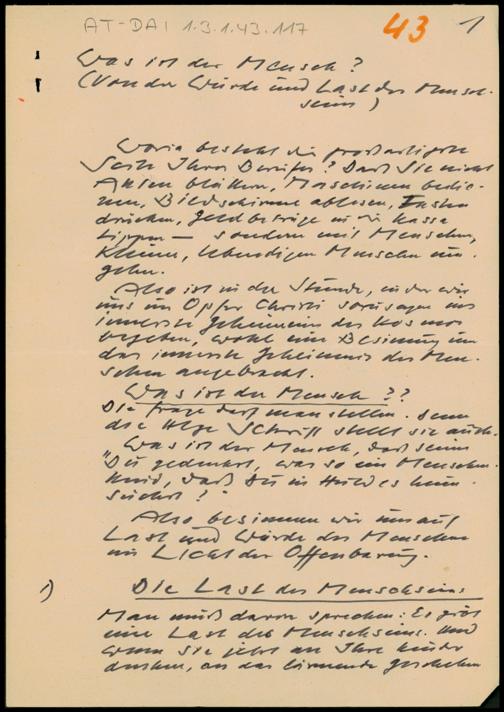 AT-DAI 1.3.1.43.117
43
1
Was ist der Mensch?
(Von der Würde und Last des Mensch-
seins)
Worin besteht die großartigste
Seite Ihres Berufes? Daß Sie nicht
Akten blättern, Maschinen bedie-
nen, Bildschirme ablesen, Tasten
drücken, Geldbeträge in die Kassa
tippen – sondern mit Menschen,
kleinen, lebendigen Menschen um-
gehen.
Also ist in der Stunde, in der wir
uns im Opfer Christi sozusagen ins
innerste Geheimnis des Kosmos
begeben, wohl eine Besinnung um
das innerste Geheimnis des Men-
schen angebracht.
Was ist der Mensch??
Die Frage darf man stellen. Denn
die Hlge Schrift stellt sie auch.
"Was ist der Mensch, daß seiner
Du gedenkst, was so ein Menschen-
kind, daß Du in Huld es heim-
suchst?"
Also besinnen wir uns auf
Last und Würde des Menschen
im Licht der Offenbarung.
1) Die Last des Menschseins
Man muß davon sprechen: Es gibt
eine Last des Menschseins. Und
wenn Sie jetzt an Ihre Kinder
denken, an das lärmende